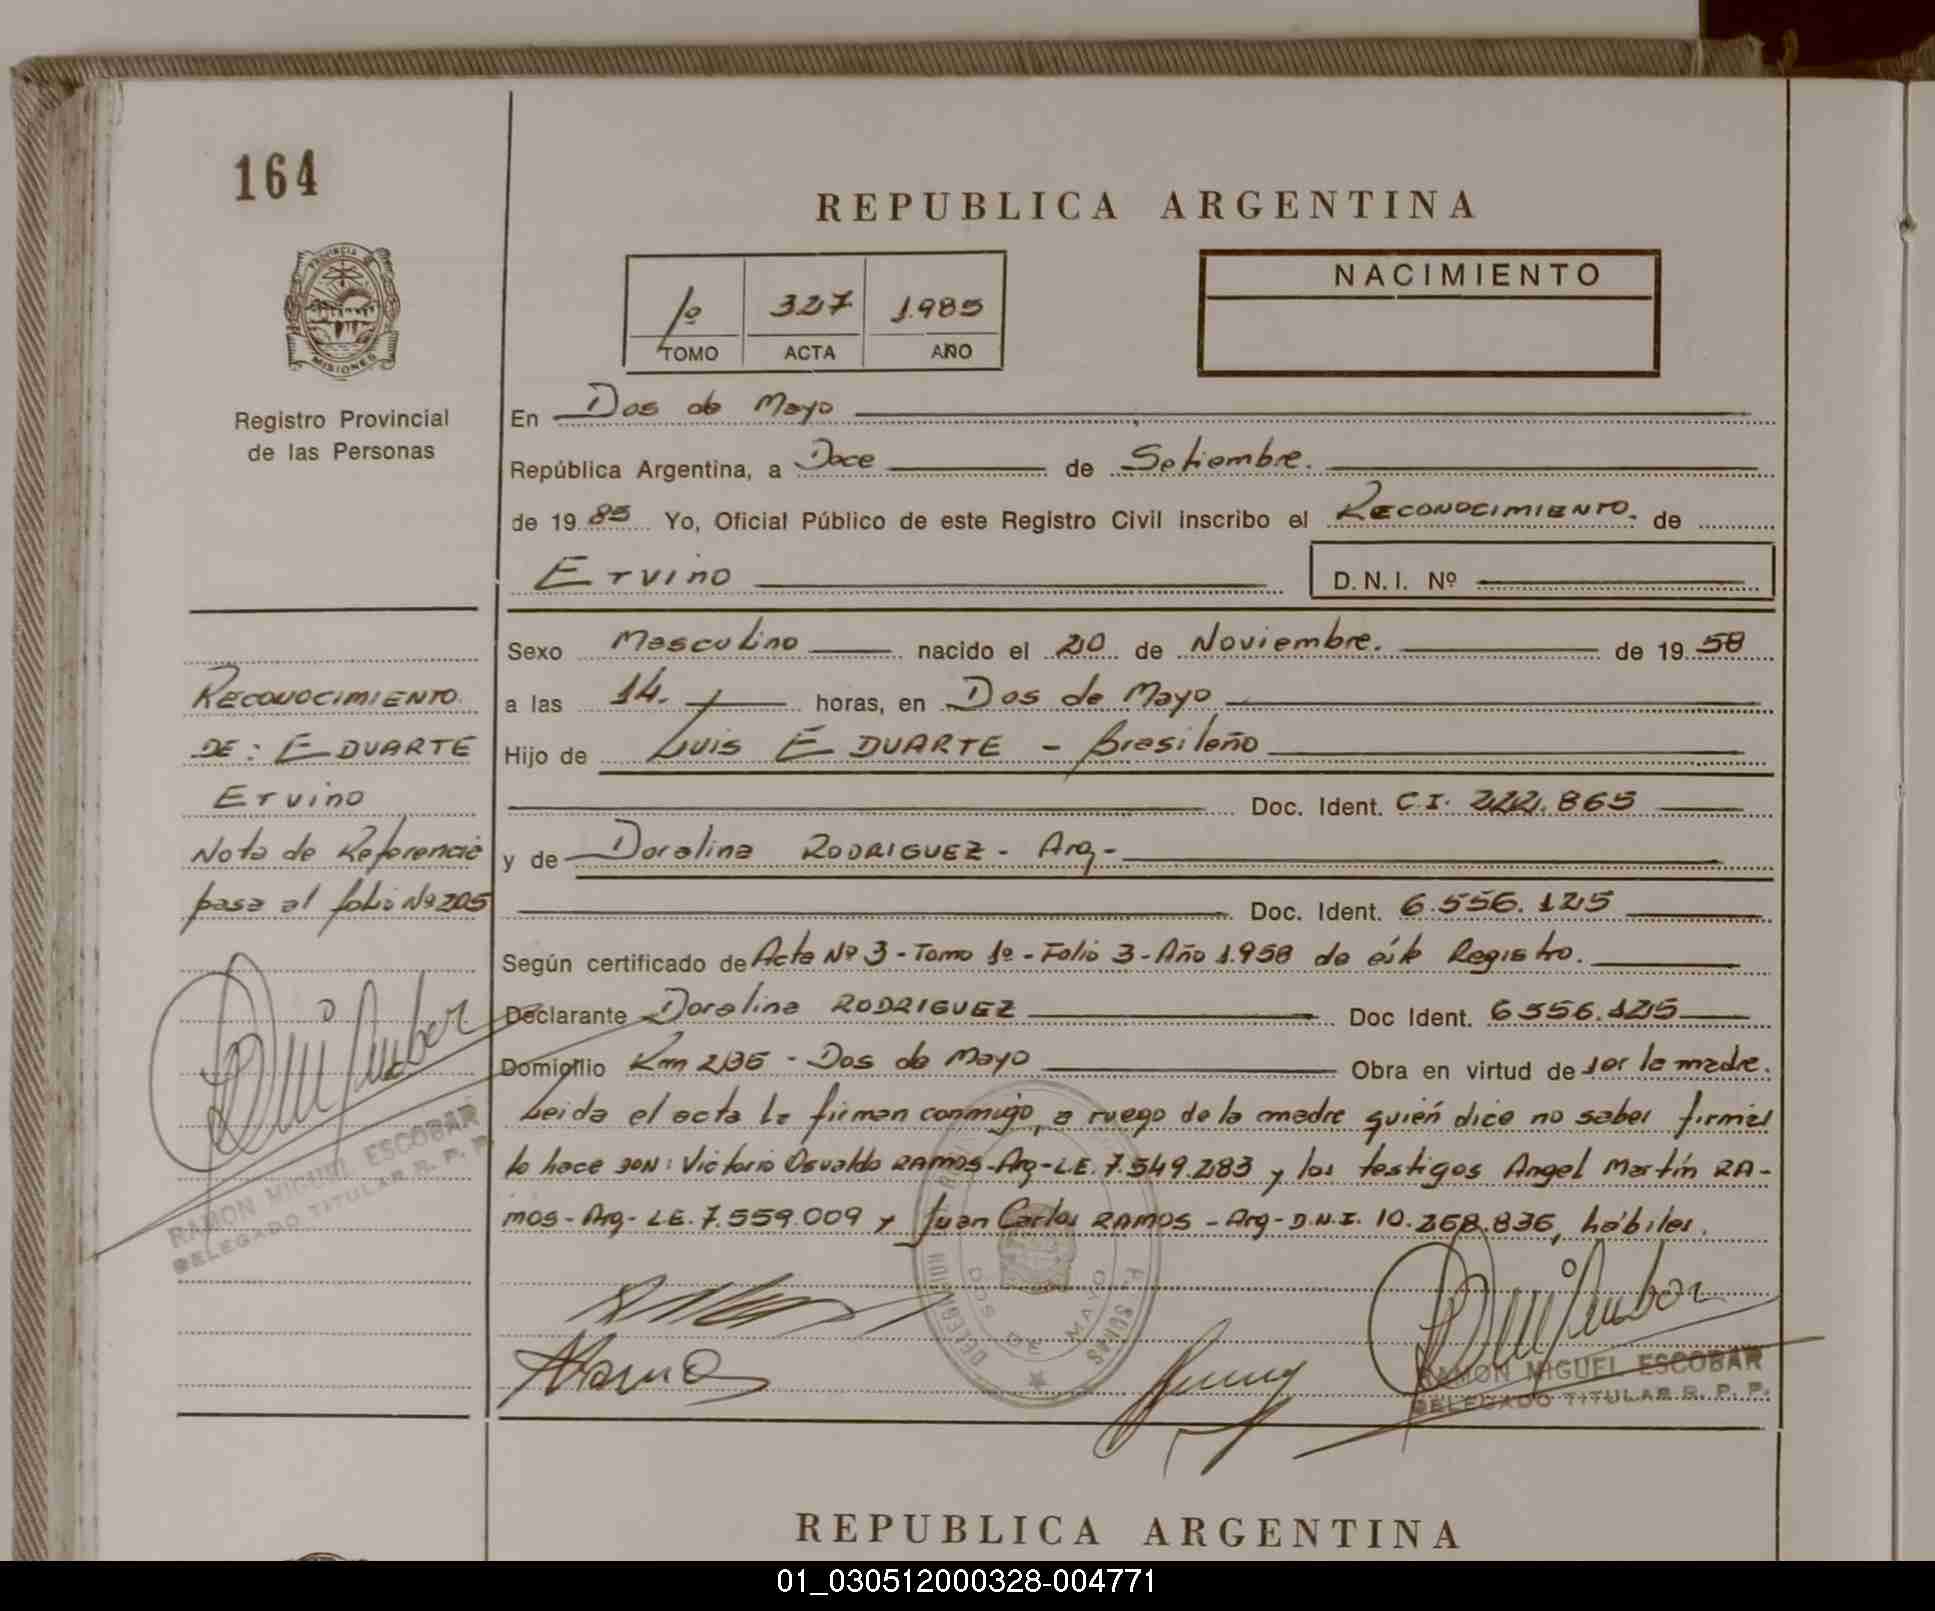 164
REPUBLICA ARGENTINA
PROVINCIA DE
MISIONES
Registro Provincial
de las Personas
1º 327 1.985
TOMO ACTA AÑO
NACIMIENTO
En Dos de Mayo
República Argentina, a Doce de Setiembre.
de 19 85 Yo, Oficial Público de este Registro Civil inscribo el RECONOCIMIENTO. de
Ervino D.N.I. Nº
Sexo Masculino nacido el 20 de Noviembre. de 19 58
a las 14. horas, en Dos de Mayo
Hijo de Luis E DUARTE - Brasileño
Doc. Ident. C.I. 222.865
y de Doralina RODRIGUEZ - Arg -
Doc. Ident. 6.556.125
Según certificado de Acta Nº 3 - Tomo 1º - Folio 3 - Año 1.958 de éste Registro.
Declarante Doralina RODRIGUEZ Doc Ident. 6.556.125
Domicilio Km 235 - Dos de Mayo Obra en virtud de ser la madre.
Leida el acta la firman conmigo, a ruego de la madre quién dice no saber firmar
lo hace DON: Victorio Osvaldo RAMOS - Arg - L.E. 7.549.283 y los testigos Angel Martín RA-
MOS - Arg - L.E. 7.559.009 y Juan Carlos RAMOS - Arg - D.N.I. 10.268.836, hábiles.
RECONOCIMIENTO
DE: E DUARTE
Ervino
Nota de Referencia
pasa al folio Nº 205
RAMON MIGUEL ESCOBAR
DELEGADO TITULAR R. P. P.
DOS DE MAYO
RAMON MIGUEL ESCOBAR
DELEGADO TITULAR R. P. P.
REPUBLICA ARGENTINA
01_030512000328-004771